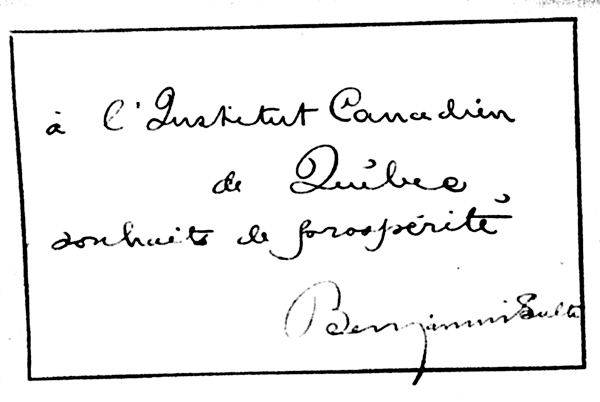 à l'Institut Canadien
de Québec
souhaits de prospérité
Benjamin Sulte